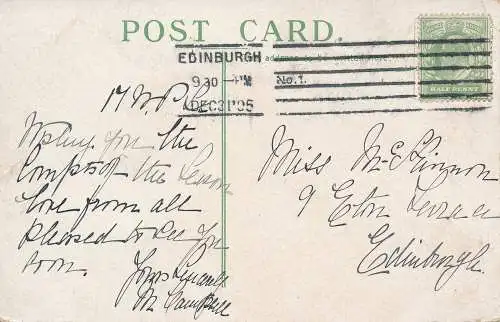 POST CARD.
EDINBURGH
9.30 PM
DEC 31 '05
No. 1.
HALFPENNY
17 W. P.
Wishing you the
Compts of the Season
Love from all
pleased to see you
soon.
Yours
M. Campbell
Miss McKinnon
9 Eton Terrace
Edinburgh.